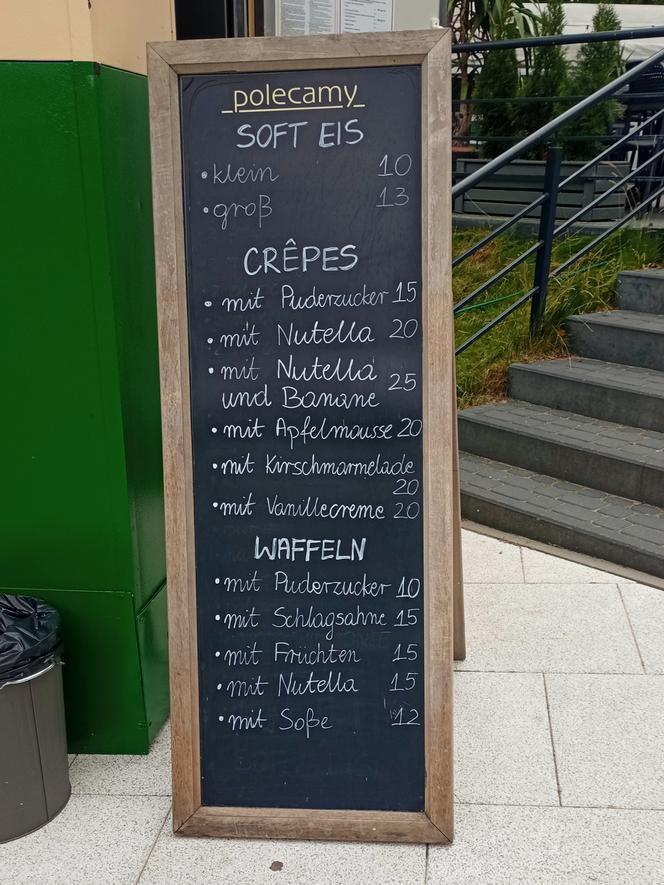 polecamy
SOFT EIS
• klein 10
• groß 13
CRÊPES
• mit Puderzucker 15
• mit Nutella 20
• mit Nutella
und Banane 25
• mit Apfelmousse 20
• mit Kirschmarmelade
20
• mit Vanillecreme 20
WAFFELN
• mit Puderzucker 10
• mit Schlagsahne 15
• mit Früchten 15
• mit Nutella 15
• mit Soße 12